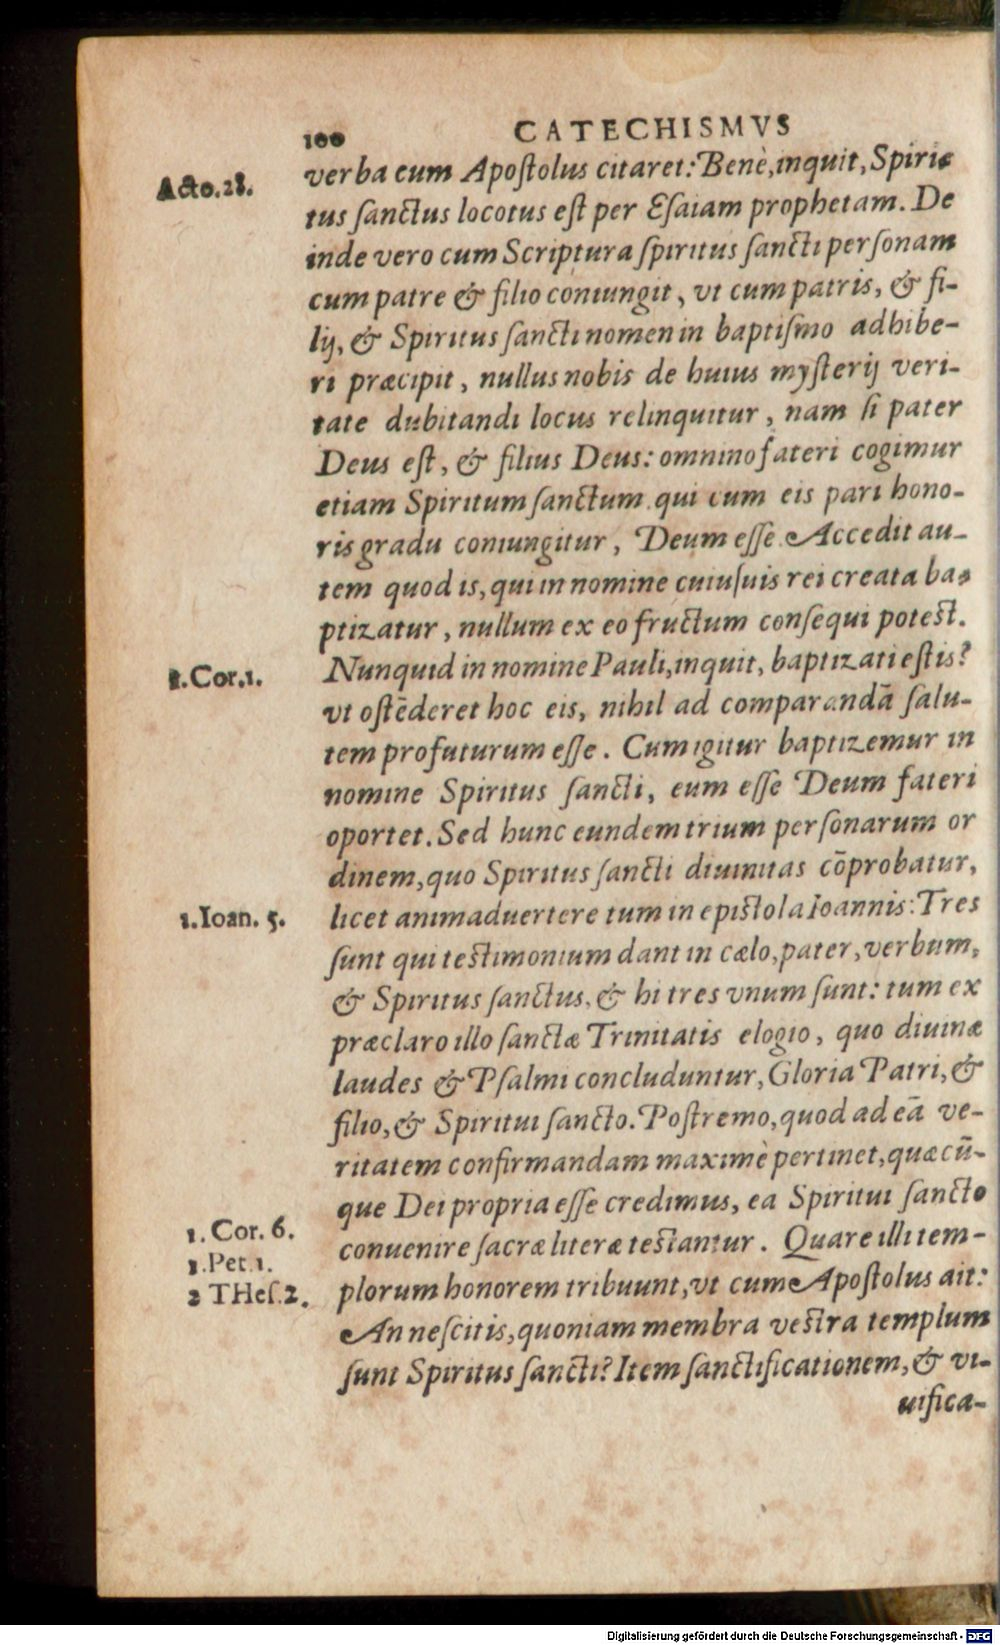 100 CATECHISMVS
Acto.28.
verba cum Apoſtolus citaret: Benè, inquit, Spiri-
tus ſanctus locotus eſt per Eſaiam prophetam. De
inde vero cum Scriptura ſpiritus ſancti perſonam
cum patre & filio coniungit, vt cum patris, & fi-
lij, & Spiritus ſancti nomen in baptiſmo adhibe-
ri præcipit, nullus nobis de huius myſterij veri-
tate dubitandi locus relinquitur, nam ſi pater
Deus eſt, & filius Deus: omnino fateri cogimur
etiam Spiritum ſanctum, qui cum eis pari hono-
ris gradu coniungitur, Deum eſſe. Accedit au-
tem quod is, qui in nomine cuiuſuis rei creata ba-
ptizatur, nullum ex eo fructum conſequi poteſt.
1.Cor.1.
Nunquid in nomine Pauli, inquit, baptizati eſtis?
vt oſtēderet hoc eis, nihil ad comparandā ſalu-
tem profuturum eſſe. Cum igitur baptizemur in
nomine Spiritus ſancti, eum eſſe Deum fateri
oportet. Sed hunc eundem trium perſonarum or
dinem, quo Spiritus ſancti diuinitas cōprobatur,
1.Ioan. 5.
licet animaduertere tum in epiſtola Ioannis: Tres
ſunt qui teſtimonium dant in cælo, pater, verbum,
& Spiritus ſanctus, & hi tres vnum ſunt: tum ex
præclaro illo ſanctæ Trinitatis elogio, quo diuinæ
laudes & Pſalmi concluduntur, Gloria Patri, &
filio, & Spiritui ſancto. Poſtremo, quod ad eā ve-
ritatem confirmandam maximè pertinet, quæcū-
que Dei propria eſſe credimus, ea Spiritui ſancto
1. Cor. 6.
conuenire ſacræ literæ teſtantur. Quare illi tem-
1.Pet.1.
2 THeſ.2.
plorum honorem tribuunt, vt cum Apoſtolus ait:
An neſcitis, quoniam membra veſtra templum
ſunt Spiritus ſancti? Item ſanctificationem, & vi-
uifica-
Digitalisierung gefördert durch die Deutsche Forschungsgemeinschaft - DFG